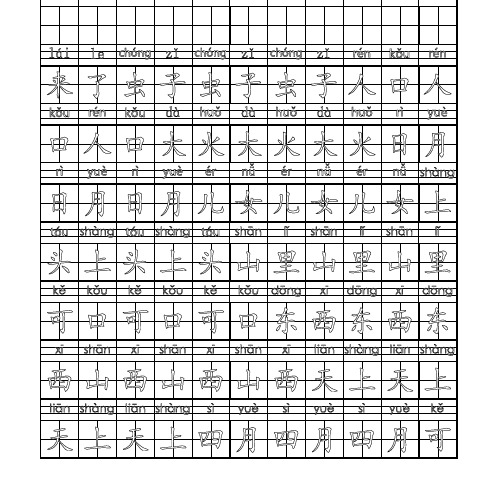 lái le chóng zǐ chóng zǐ chóng zǐ rén kǒu rén
来 了 虫 子 虫 子 虫 子 人 口 人
kǒu rén kǒu dà huǒ dà huǒ dà huǒ rì yuè
口 人 口 大 火 大 火 大 火 日 月
rì yuè rì yuè ér nǚ ér nǚ ér nǚ shàng
日 月 日 月 儿 女 儿 女 儿 女 上
tóu shàng tóu shàng tóu shān lǐ shān lǐ shān lǐ
头 上 头 上 头 山 里 山 里 山 里
kě kǒu kě kǒu kě kǒu dōng xī dōng xī dōng
可 口 可 口 可 口 东 西 东 西 东
xī shān xī shān xī shān xī tiān shàng tiān shàng
西 山 西 山 西 山 西 天 上 天 上
tiān shàng tiān shàng sì yuè sì yuè sì yuè kě
天 上 天 上 四 月 四 月 四 月 可